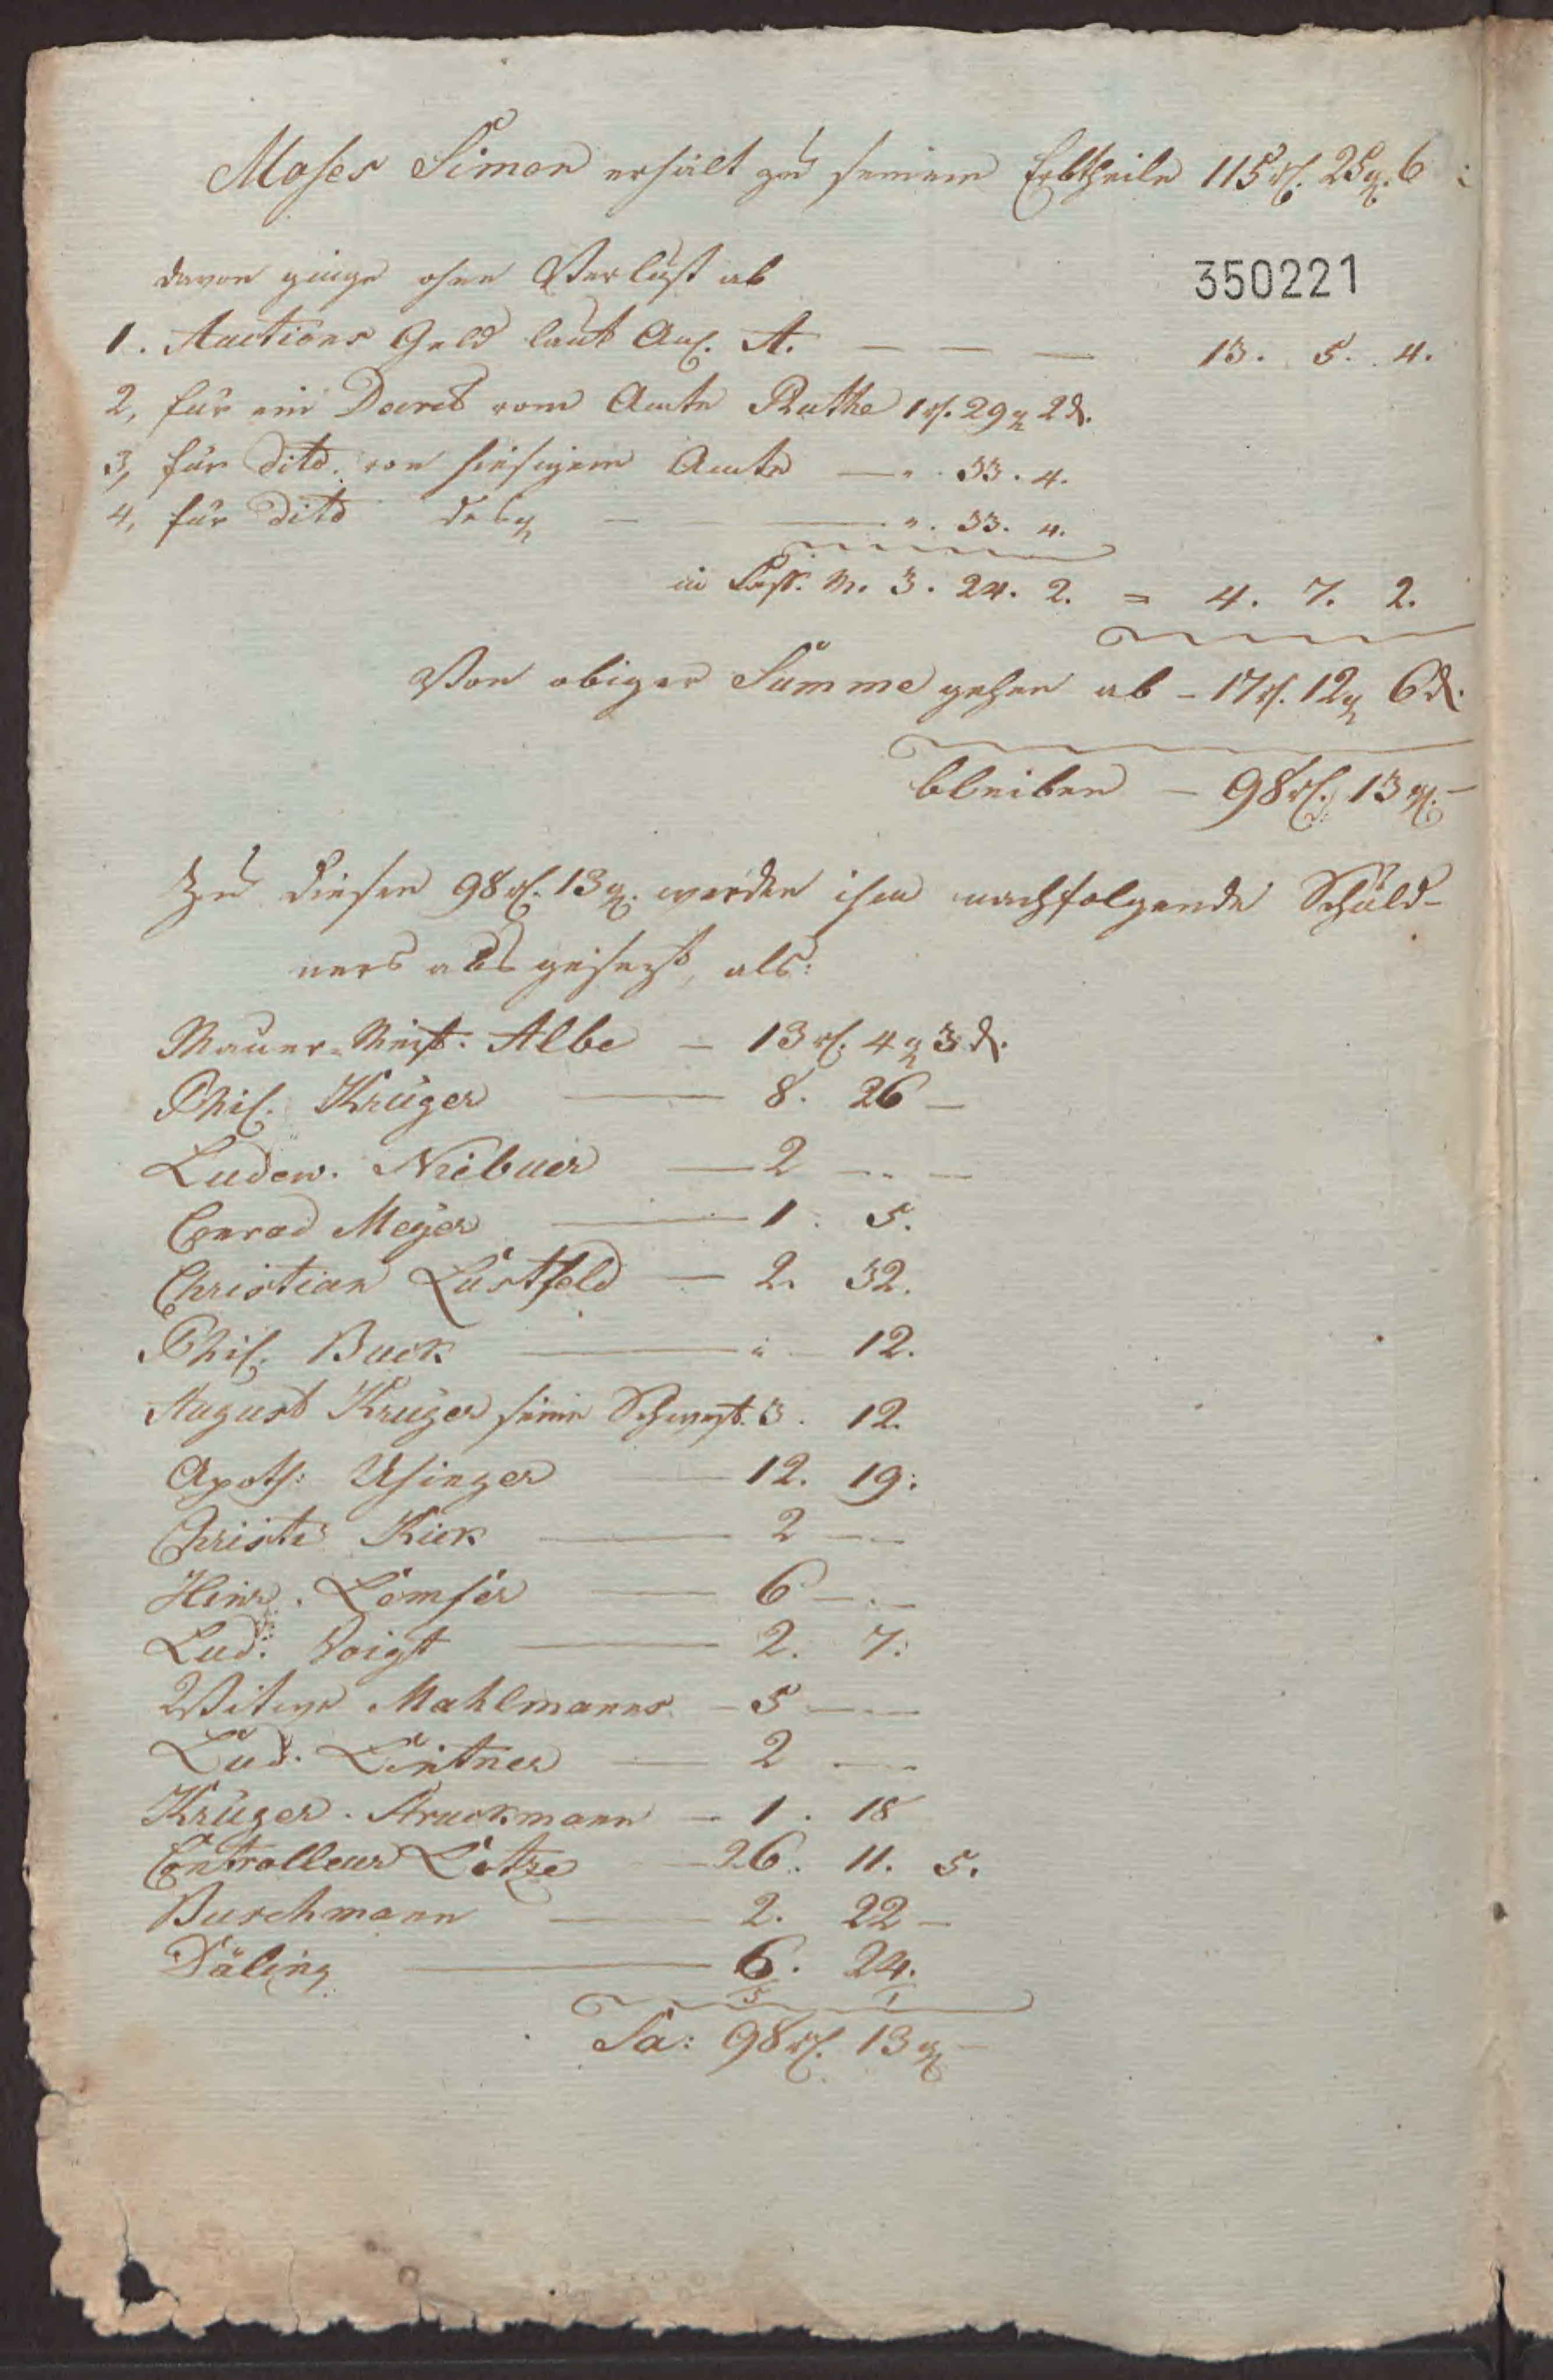 Moses Simon erhält zu seinem Erbtheile 115 rf. 25 g. 6
350221
davon ginge ohne Verlust ab
1. Auctions Geld laut Anl. A. — — — 13. 5. 4.
2, für ein Decret vom Amte Ruthe 1 rf. 29 g 2 d.
3, für dito. von hiesigem Amte — " 33. 4.
4, für dito desg — — ". 33. 4.
in Cass. M. 3. 24. 2. = 4. 7. 2.
Von obiger Summe gehen ab - 17 rf. 12 g 6 d.
bleiben — 98 rf. 13 g. —
Zu diesen 98 rf. 13 g. werden ihm nachfolgende Schuld-
ners ausgesezt, als:
Mauer-Meist. Albe — 13 rf. 4 g 3 d.
Phil. Krüger — 8. 26 —
Ludew. Niebuer — 2 — —
Conrad Meyer — 1. 5.
Christian Lustfeld — 2. 32.
Phil. Buck — " — 12.
August Krüger seine Schwest. 3. 12.
Apoth: Usinger — 12. 19.
Christ: Kick — 2 —
Heinr. — 6 — —
Lud: Voigt — 2. 7.
Witwe Mahlmanns — 5 — —
Lud. Lintner — 2 — —
Krüger. Struckmann — 1. 18
Controlleur Lotze — 26. 11. 5.
Buschmann — 2. 22 —
Däling — 6. 24.
5 1
Sa: 98 rf. 13 g —